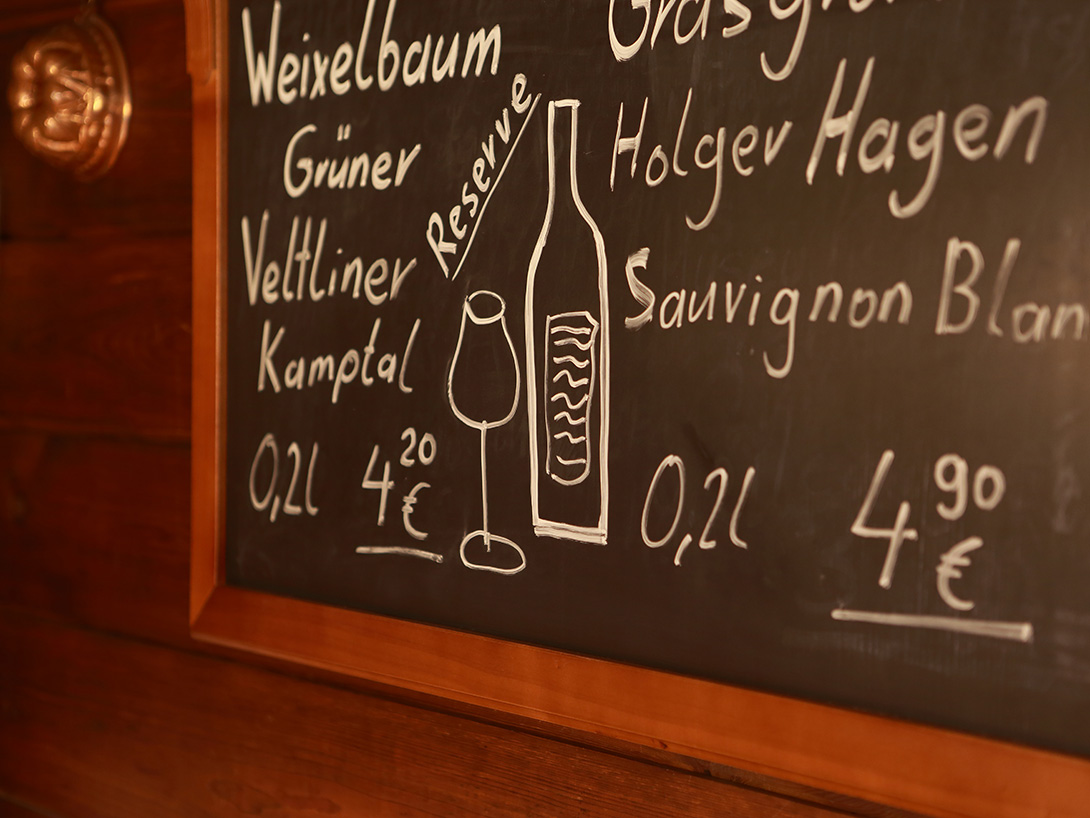 Weixelbaum
Grüner
Veltliner
Kamptal
0,2l 4 20 €
Reserve
Holger Hagen
Sauvignon Blan
0,2l 4 90 €